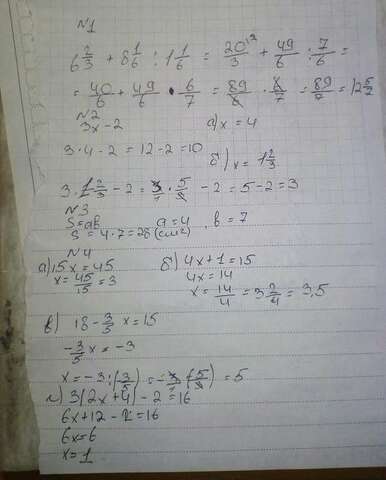 №1
6 2/3 + 8 1/6 : 1 1/6 = 20/3 \2 + 49/6 : 7/6 =
= 40/6 + 49/6 • 6/7 = 89/6 · 6/7 = 89/7 = 12 5/7
№2
3x-2 а) x = 4
3·4-2 = 12-2=10
б) x = 1 2/3
3·1 2/3 - 2 = 3/1 · 5/3 - 2 = 5-2=3
№3
S=ab a=4, b=7
S = 4·7=28(см²)
№4
а) 15x=45 б) 4x+1=15
x=45/15=3 4x=14
x=14/4=3 2/4=3,5
в) 18-3/5 x=15
-3/5 x= -3
x=-3:(3/5)=-3/1·(5/3)=5
г) 3(2x+4)-2=16
6x+12-2=16
6x=6
x=1